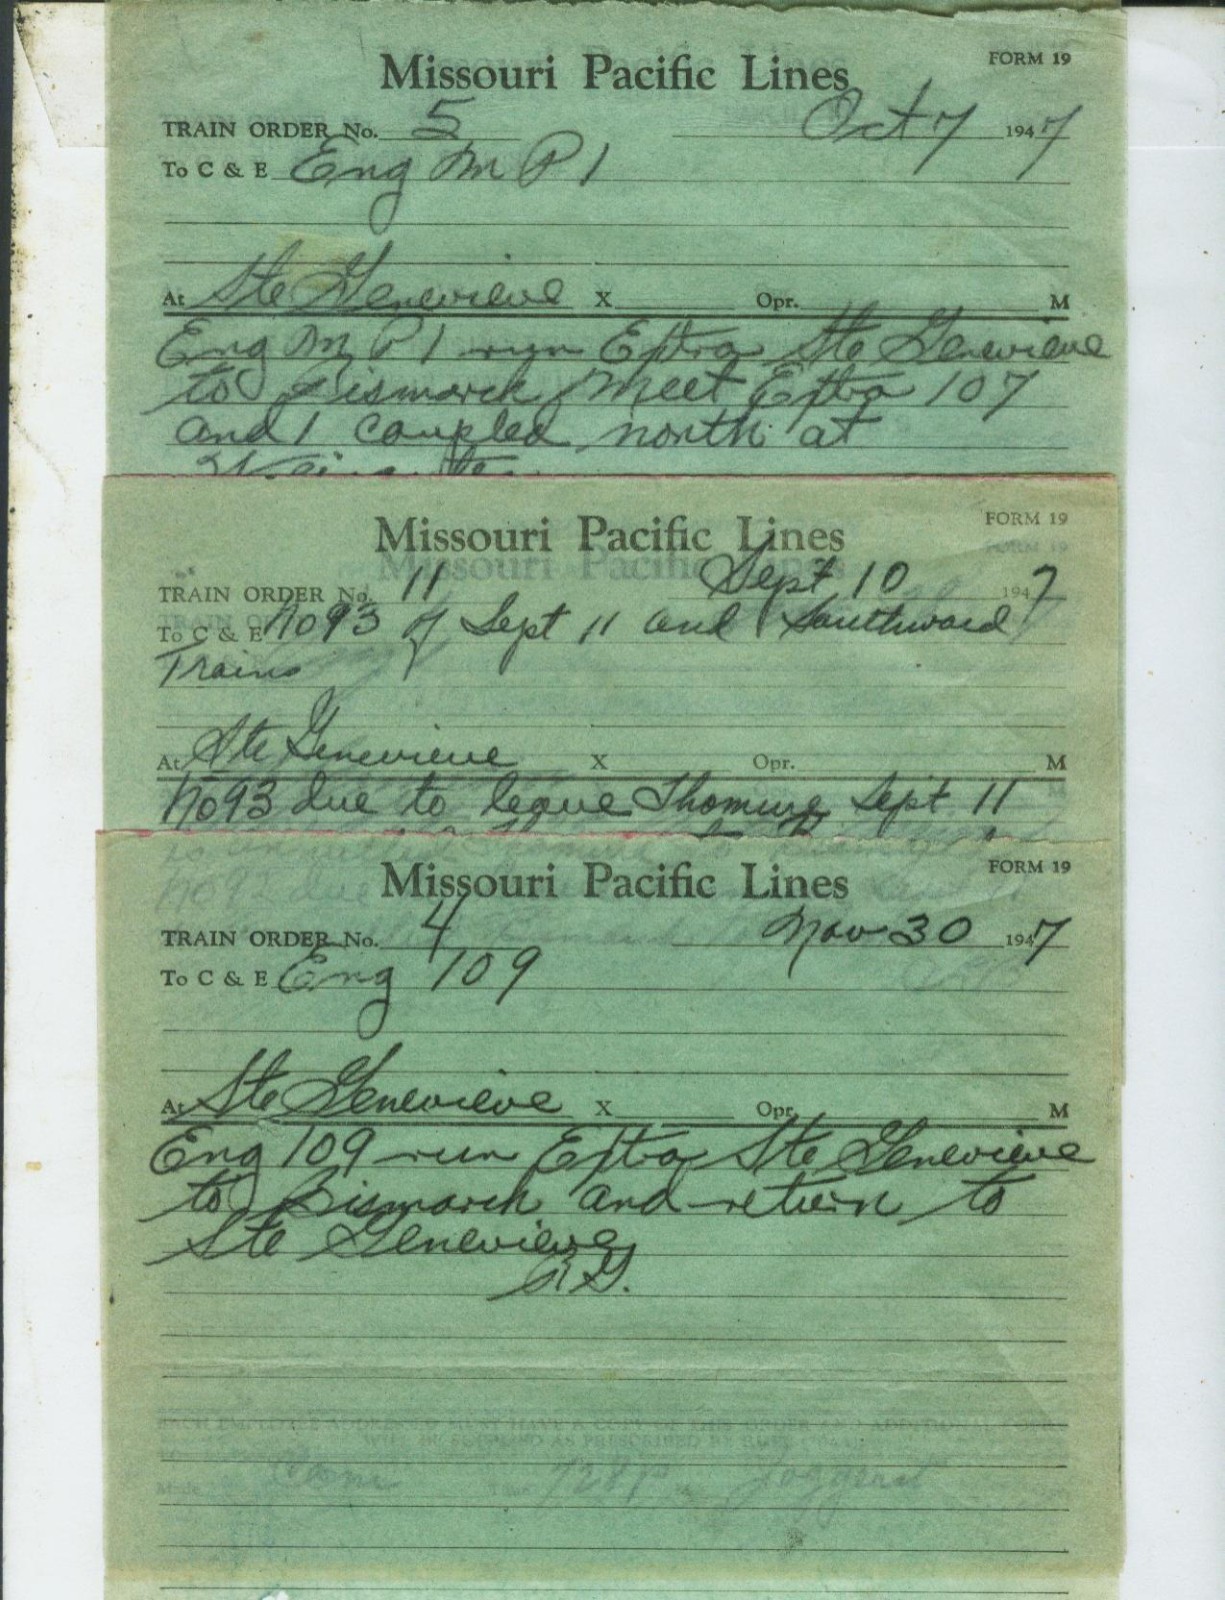 Missouri Pacific Lines FORM 19
TRAIN ORDER No. 5 Oct 7 1947
To C & E Eng M P 1
At Ste Genevieve X Opr. M
Eng M P 1 run Extra Ste Genevieve
to Bismarck Meet Extra 107
and 1 coupled north at
Missouri Pacific Lines FORM 19
TRAIN ORDER No. 11 Sept 10 1947
To C & E No 93 of Sept 11 and Southward
Trains
At Ste Genevieve X Opr. M
No 93 due to leave Thomure Sept 11
Missouri Pacific Lines FORM 19
TRAIN ORDER No. 4 Nov 30 1947
To C & E Eng 109
At Ste Genevieve X Opr. M
Eng 109 run Extra Ste Genevieve
to Bismarck and return to
Ste Genevieve
EACH EMPLOYEE ADDRESSED MUST HAVE A COPY OF THIS ORDER
Com 728P